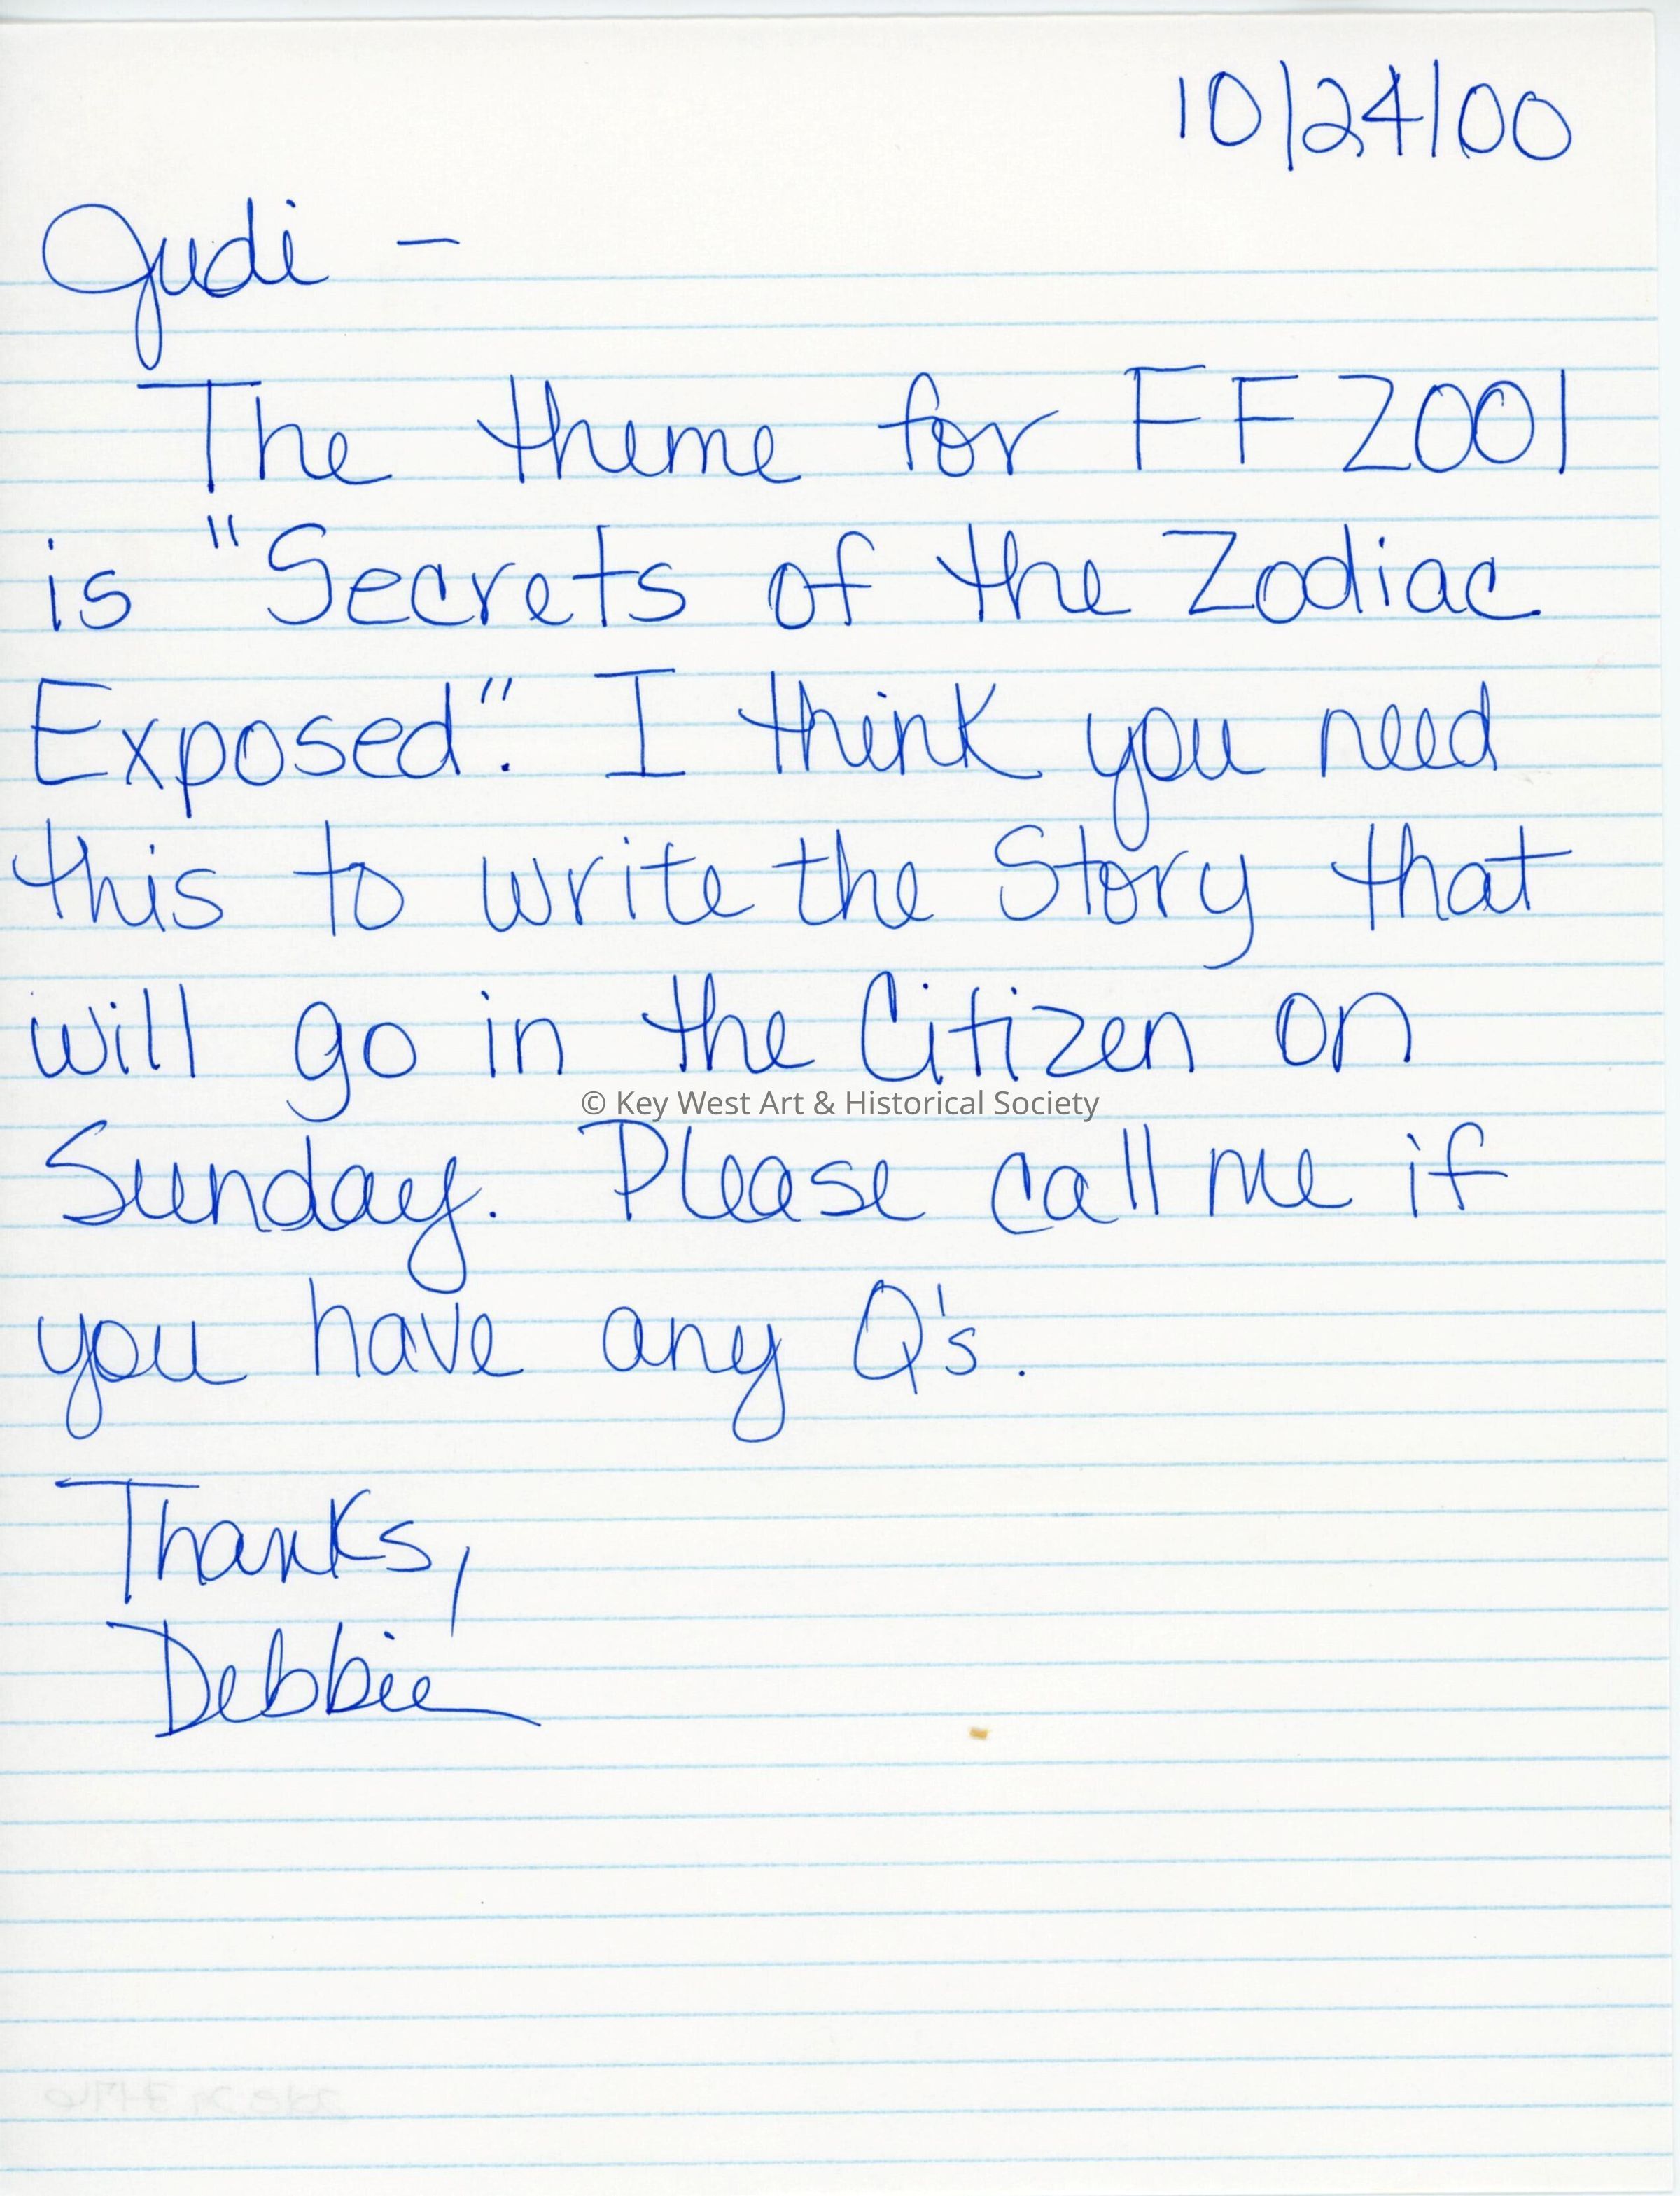 10/24/00
Judi -
The theme for FF 2001
is "Secrets of the Zodiac
Exposed". I think you need
this to write the Story that
will go in the Citizen on
© Key West Art & Historical Society
Sunday. Please call me if
you have any Q's.
Thanks,
Debbie